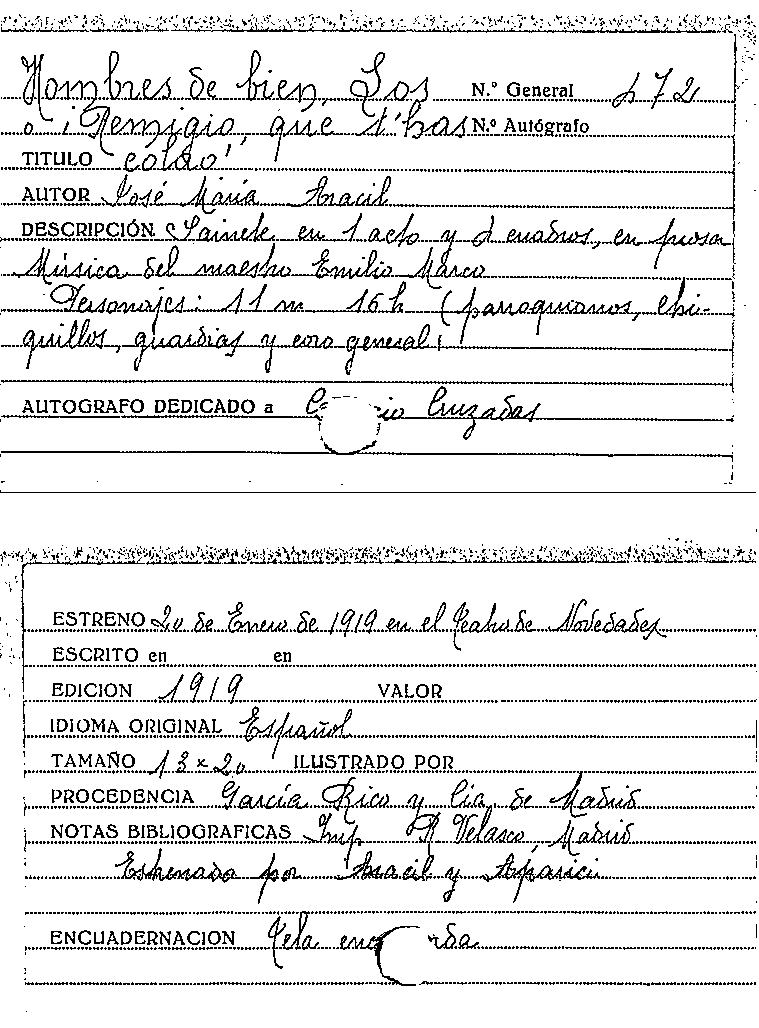 Hombres de bien, Los N.º General 472
o ¡Remigio, que t'has N.º Autógrafo
TITULO colao!
AUTOR José María Aracil
DESCRIPCIÓN Sainete en 1 acto y 2 cuadros, en prosa
Música del maestro Emilio Marco
Personajes: 11 m 16 h (parroquianos, chi-
quillos, guardias y coro general)
AUTOGRAFO DEDICADO a Cruzadas
ESTRENO 20 de Enero de 1919 en el Teatro de Novedades
ESCRITO en en
EDICION 1919 VALOR
IDIOMA ORIGINAL Español
TAMAÑO 13 x 20 ILUSTRADO POR
PROCEDENCIA García Rico y Cia, de Madrid
NOTAS BIBLIOGRAFICAS Imp R Velasco, Madrid
Estrenado por Aracil y Aparici
ENCUADERNACION Tela